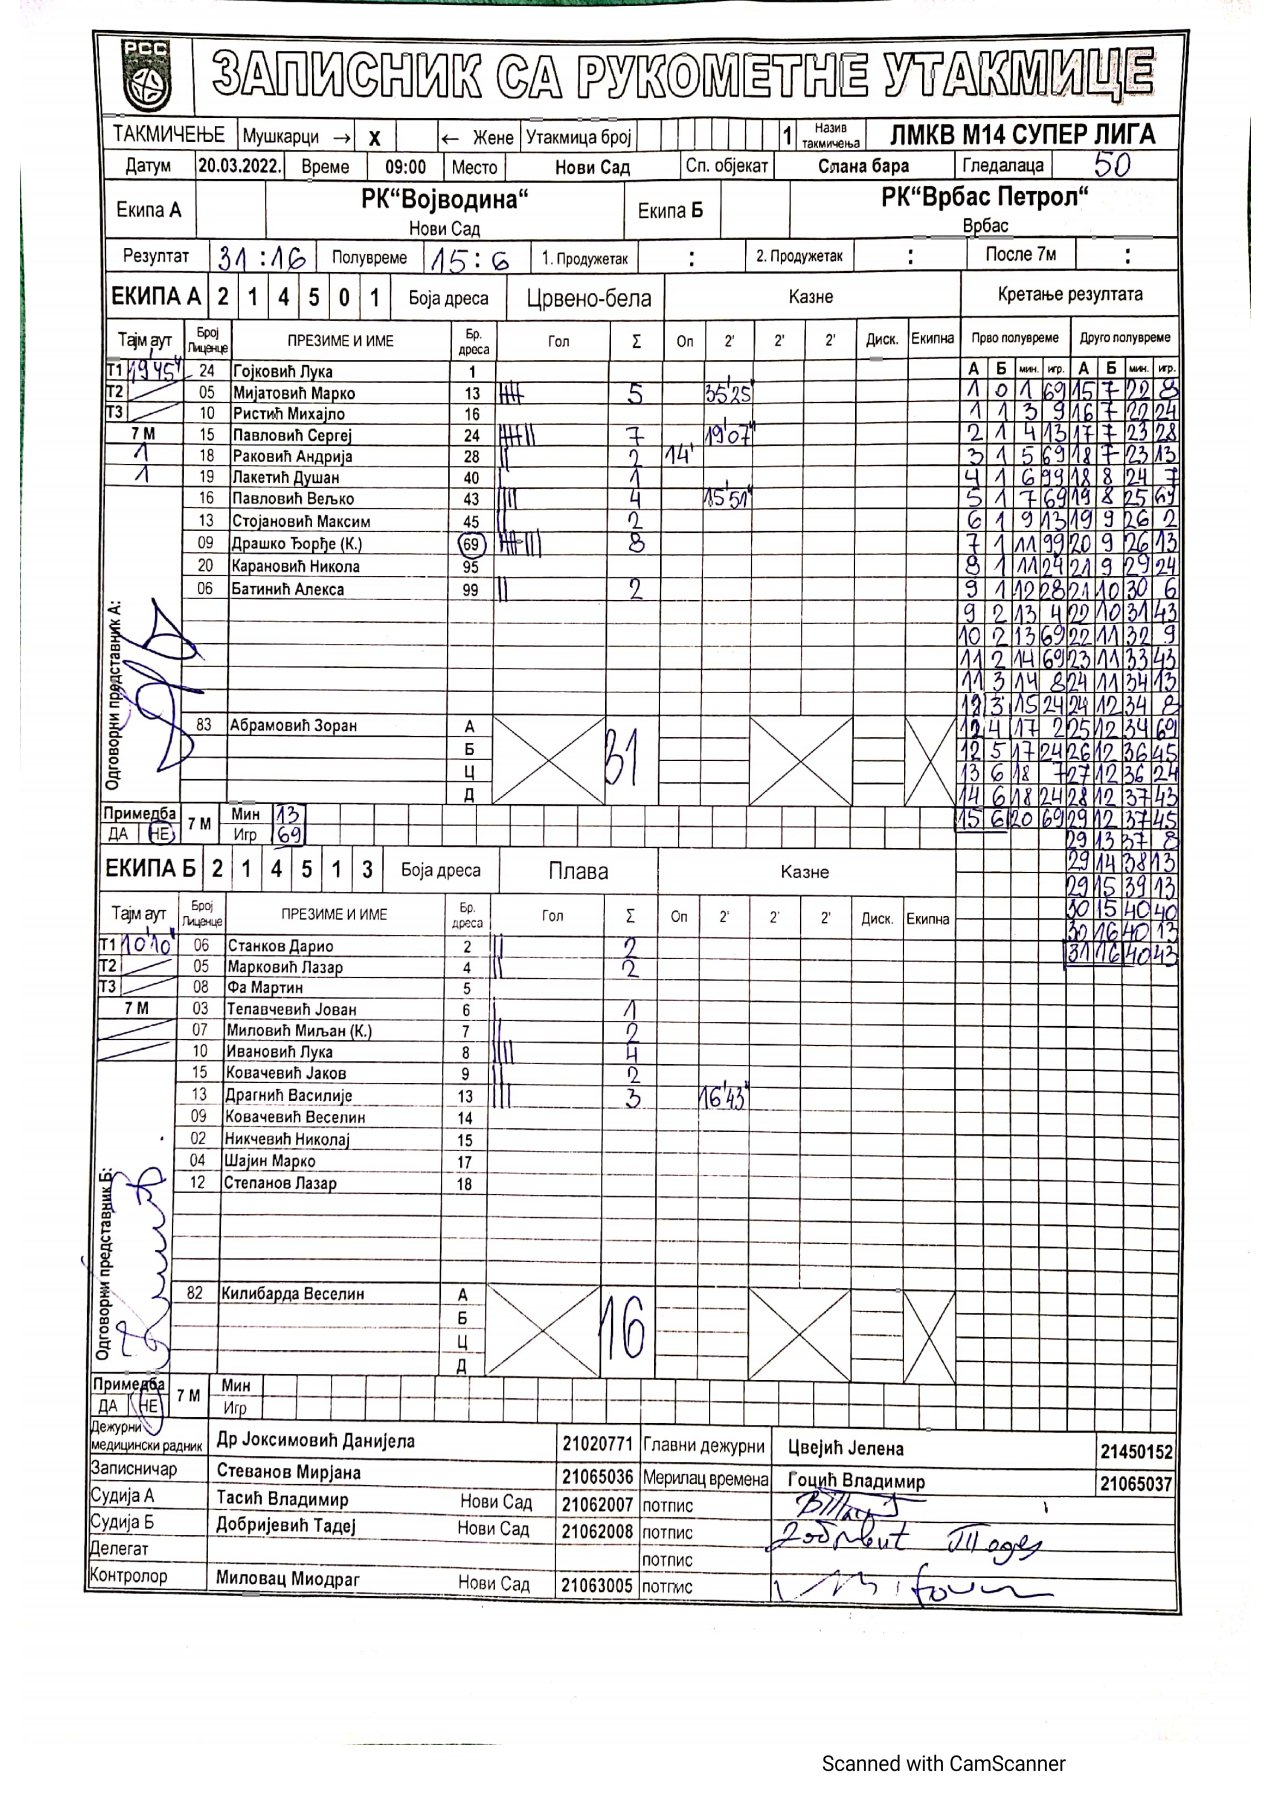 РСС
ЗАПИСНИК СА РУКОМЕТНЕ УТАКМИЦЕ
ТАКМИЧЕЊЕ Мушкарци → X ← Жене Утакмица број 1 Назив такмичења ЛМКВ М14 СУПЕР ЛИГА
Датум 20.03.2022. Време 09:00 Место Нови Сад Сп. објекат Слана бара Гледалаца 50
Екипа А РК“Војводина“ Нови Сад Екипа Б РК“Врбас Петрол“ Врбас
Резултат 31 : 16 Полувреме 15 : 6 1. Продужетак : 2. Продужетак : После 7м :
ЕКИПА А 2 1 4 5 0 1 Боја дреса Црвено-бела Казне Кретање резултата
Тајм аут Број Лиценце ПРЕЗИМЕ И ИМЕ Бр. дреса Гол Σ Оп 2' 2' 2' Диск. Екипна Прво полувреме Друго полувреме
Т1 19'45" 24 Гојковић Лука 1 А Б мин. игр. А Б мин. игр.
Т2 05 Мијатовић Марко 13 5 35'25" 1 0 1 69 15 7 22 8
Т3 10 Ристић Михајло 16 1 1 3 9 16 7 22 24
7 М 15 Павловић Сергеј 24 7 19'07" 2 1 4 13 17 7 23 28
1 18 Раковић Андрија 28 2 14' 3 1 5 69 18 7 23 13
1 19 Лакетић Душан 40 1 4 1 6 99 18 8 24 7
16 Павловић Вељко 43 4 15'51" 5 1 7 69 19 8 25 69
13 Стојановић Максим 45 2 6 1 9 13 19 9 26 2
09 Драшко Ђорђе (К.) 69 8 7 1 11 99 20 9 26 13
20 Карановић Никола 95 8 1 11 24 21 9 29 24
06 Батинић Алекса 99 2 9 1 12 28 21 10 30 6
9 2 13 4 22 10 31 43
10 2 13 69 22 11 32 9
11 2 14 69 23 11 33 43
11 3 14 8 24 11 34 13
12 3 15 24 24 12 34 8
Одговорни представник А:
83 Абрамовић Зоран А 31 12 4 17 2 25 12 34 69
Б 12 5 17 24 26 12 36 45
Ц 13 6 18 7 27 12 36 24
Д 14 6 18 24 28 12 37 43
Примедба ДА НЕ 7 М Мин 13 15 6 20 69 29 12 37 45
Игр 69 29 13 37 8
ЕКИПА Б 2 1 4 5 1 3 Боја дреса Плава Казне 29 14 38 13
29 15 39 13
Тајм аут Број Лиценце ПРЕЗИМЕ И ИМЕ Бр. дреса Гол Σ Оп 2' 2' 2' Диск. Екипна 30 15 40 40
30 16 40 13
Т1 10'10" 06 Станков Дарио 2 2 31 16 40 43
Т2 05 Марковић Лазар 4 2
Т3 08 Фа Мартин 5
7 М 03 Тепавчевић Јован 6 1
07 Миловић Миљан (К.) 7 2
10 Ивановић Лука 8 4
15 Ковачевић Јаков 9 2
13 Драгнић Василије 13 3 16'43"
09 Ковачевић Веселин 14
02 Никчевић Николај 15
04 Шајин Марко 17
12 Степанов Лазар 18
Одговорни представник Б:
82 Килибарда Веселин А 16
Б
Ц
Д
Примедба ДА НЕ 7 М Мин
Игр
Дежурни медицински радник Др Јоксимовић Данијела 21020771 Главни дежурни Цвејић Јелена 21450152
Записничар Стеванов Мирјана 21065036 Мерилац времена Гоцић Владимир 21065037
Судија А Тасић Владимир Нови Сад 21062007 потпис
Судија Б Добријевић Тадеј Нови Сад 21062008 потпис
Делегат потпис
Контролор Миловац Миодраг Нови Сад 21063005 потпис
Scanned with CamScanner